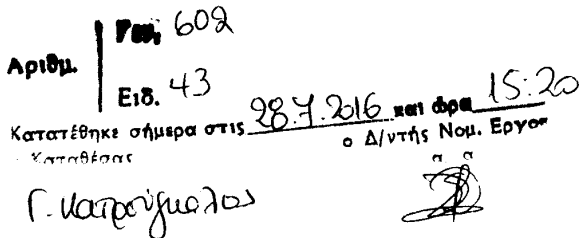 Αριθμ.
Γεν. 602
Ειδ. 43
Κατατέθηκε σήμερα στις 28.7.2016 και ώρα 15:20
Ο Καταθέσας
ο Δ/ντής Νομ. Εργου
α α
Γ. Κατρούγκαλος